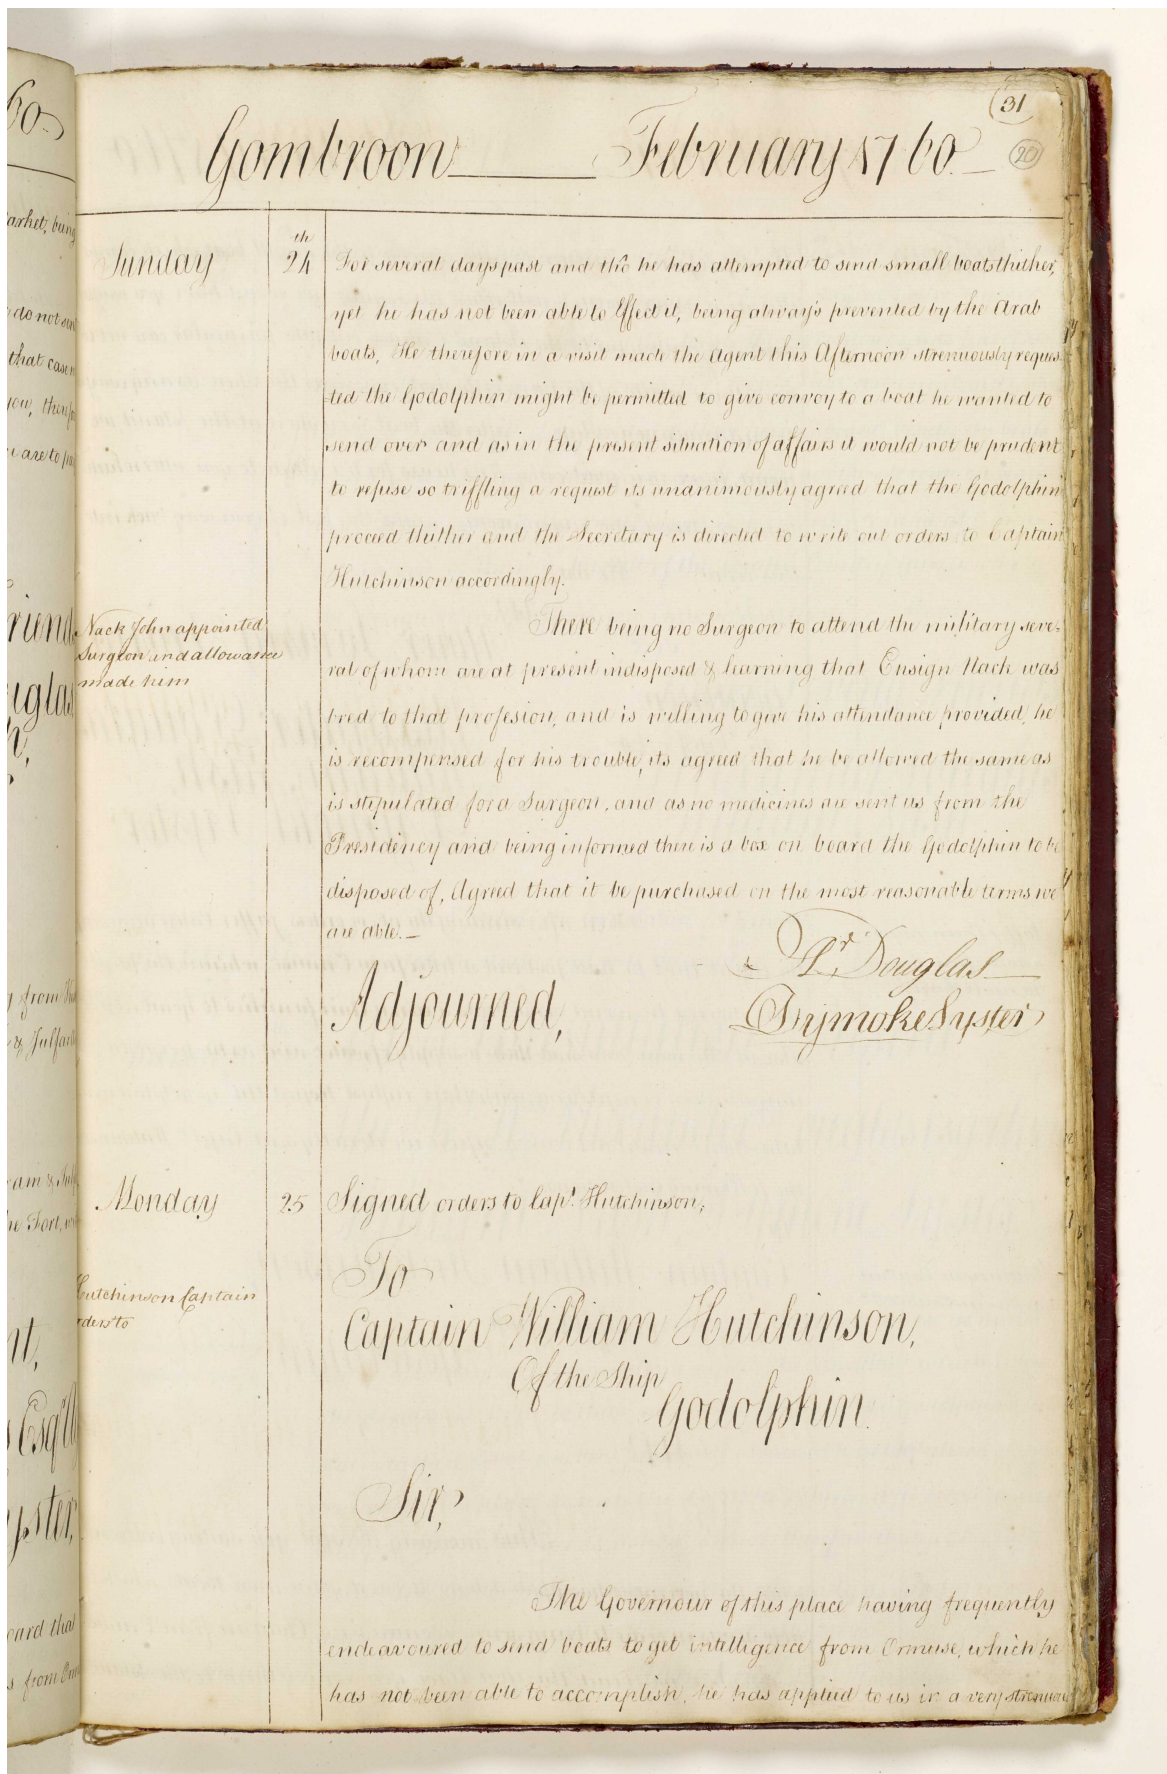 31
20
Gombroon February 1760.
Sunday 24th For several days past and tho he has attempted to send small boats thither,
yet he has not been able to Effect it, being always prevented by the Arab
boats, He therefore in a visit made the Agent this Afternoon strenuously reques-
ted the Godolphin might be permitted to give convoy to a boat he wanted to
send over and as in the present situation of affairs it would not be prudent
to refuse so triffling a request its unanimously agreed that the Godolphin
proceed thither and the Secretary is directed to write out orders to Captain
Hutchinson accordingly.
Nack John appointed
Surgeon and allowance
made him
There being no Surgeon to attend the military seve-
ral of whom are at present indisposed & learning that Ensign Nack was
bred to that profesion, and is willing to give his attendance provided he
is recompensed for his trouble, its agreed that he be allowed the same as
is stipulated for a Surgeon, and as no medicines are sent us from the
Presidency and being informed there is a box on board the Godolphin to be
disposed of, Agreed that it be purchased on the most reasonable terms we
are able.
Adjourned,
Douglas
Dymoke Lyster
Monday 25 Signed orders to Capt. Hutchinson,
Hutchinson Captain
orders to
To
Captain William Hutchinson,
Of the Ship
Godolphin.
Sir,
The Governour of this place having frequently
endeavoured to send boats to get intelligence from Ormuse, which he
has not been able to accomplish, he has applied to us in a very strenuous